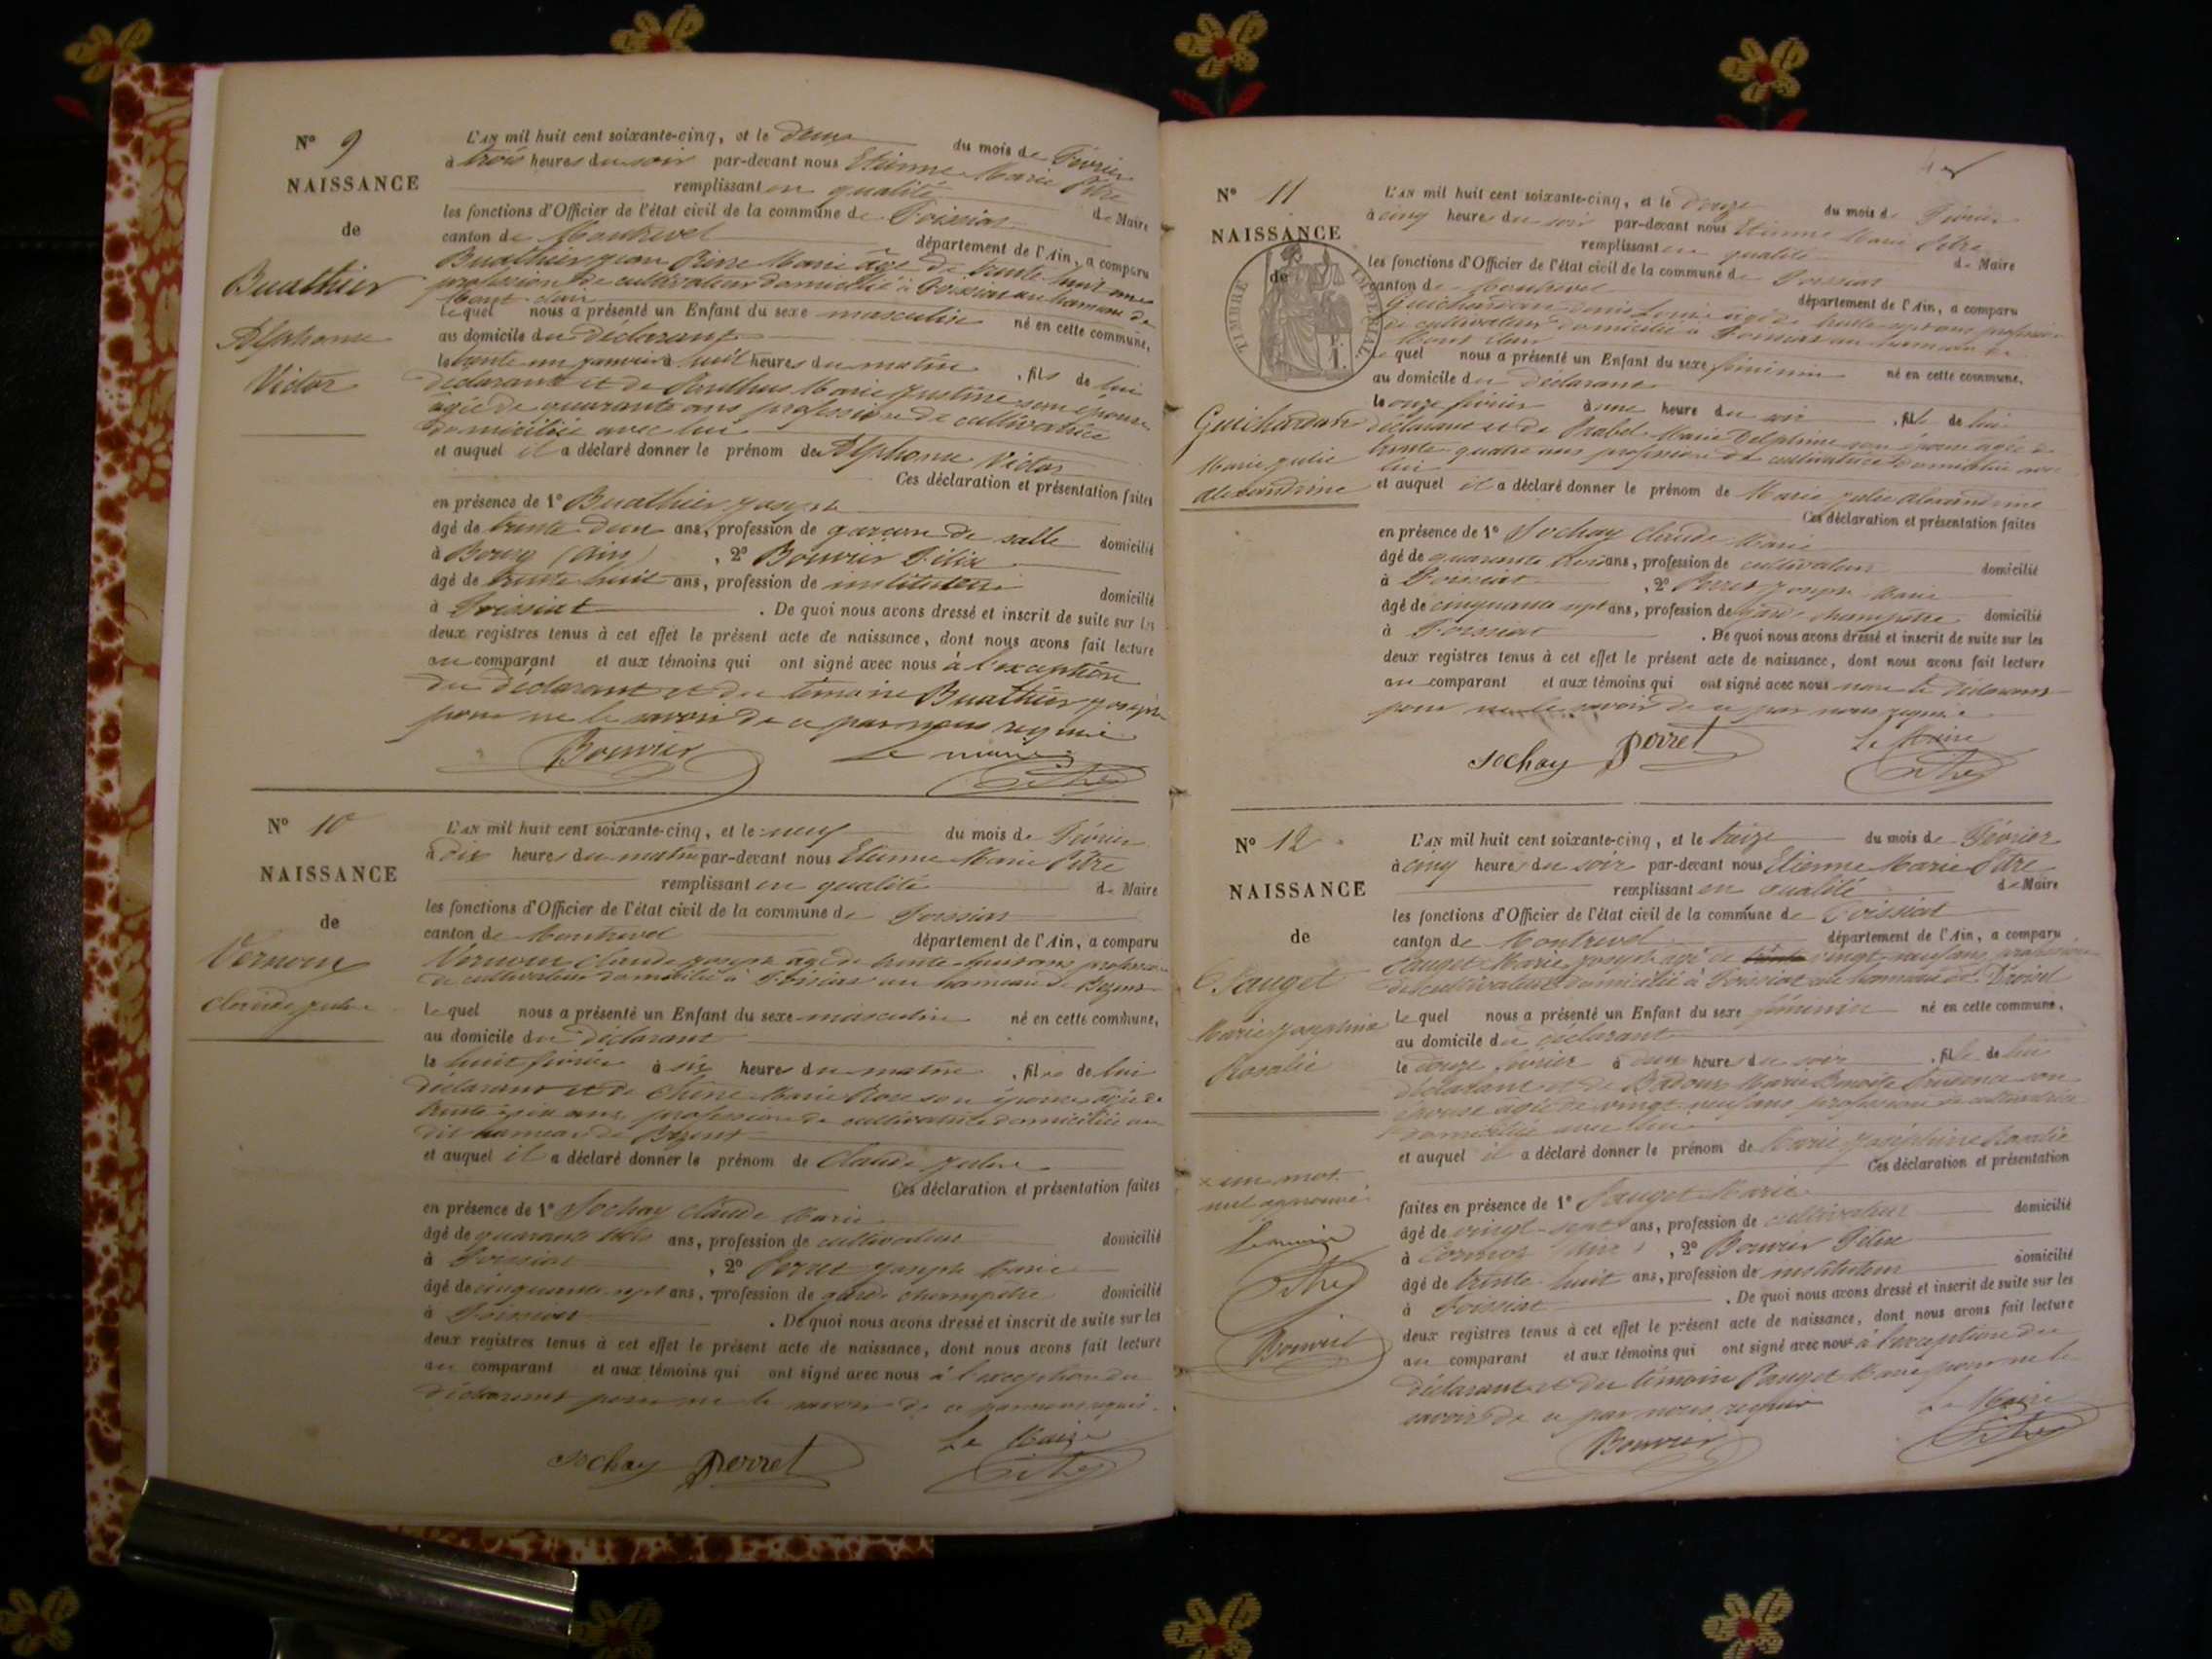 N° 9
NAISSANCE
de
Buathier
Alphonse
Victor
L'AN mil huit cent soixante-cinq, et le deux du mois de Février
à trois heures du soir par-devant nous Etienne Marie Pitre
remplissant en qualité de Maire
les fonctions d'Officier de l'état civil de la commune de Foissiat
canton de Montrevel département de l'Ain, a comparu
Buathier Jean Pierre Marie âgé de trente huit ans
profession de cultivateur domicilié à Foissiat au hameau de
Mont-clair
Lequel nous a présenté un Enfant du sexe masculin né en cette commune,
au domicile du Déclarant
le trente un janvier à huit heures du matin , fils de lui
déclarant et de Marie Justine son épouse
âgée de quarante ans profession de cultivatrice
domiciliée avec lui
et auquel il a déclaré donner le prénom de Alphonse Victor
Ces déclaration et présentation faites
en présence de 1° Buathier Joseph
âgé de trente deux ans, profession de garçon de salle domicilié
à Bourg (Ain) , 2° Bouvier Félix
âgé de trente huit ans, profession de instituteur domicilié
à Foissiat . De quoi nous avons dressé et inscrit de suite sur les
deux registres tenus à cet effet le présent acte de naissance, dont nous avons fait lecture
au comparant et aux témoins qui ont signé avec nous à l'exception
du déclarant et du témoin Buathier Joseph
pour ne le savoir de ce par nous requis
Bouvier Le maire
Pitre
N° 10
NAISSANCE
de
Vernoux
Claude Jules
L'AN mil huit cent soixante-cinq, et le neuf du mois de Février
à dix heures du matin par-devant nous Etienne Marie Pitre
remplissant en qualité de Maire
les fonctions d'Officier de l'état civil de la commune de Foissiat
canton de Montrevel département de l'Ain, a comparu
Vernoux Claude Joseph âgé de trente huit ans profession
de cultivateur domicilié à Foissiat au hameau de
Lequel nous a présenté un Enfant du sexe masculin né en cette commune,
au domicile du Déclarant
le huit février à six heures du matin , fils de lui
déclarant et de Chêne Marie Rose son épouse âgée de
trente six ans profession de cultivatrice domiciliée au
dit hameau de
et auquel il a déclaré donner le prénom de Claude Jules
Ces déclaration et présentation faites
en présence de 1° Sochay Claude Marie
âgé de quarante trois ans, profession de cultivateur domicilié
à Foissiat , 2° Perret Joseph Marie
âgé de cinquante sept ans, profession de garde champêtre domicilié
à Foissiat . De quoi nous avons dressé et inscrit de suite sur les
deux registres tenus à cet effet le présent acte de naissance, dont nous avons fait lecture
au comparant et aux témoins qui ont signé avec nous à l'exception du
déclarant pour ne le savoir de ce par nous requis.
Sochay Perret Le Maire
Pitre
N° 11
NAISSANCE
de
TIMBRE IMPERIAL
F.
1.
Guichardan
Marie Julie
Alexandrine
L'AN mil huit cent soixante-cinq, et le Douze du mois de Février
à cinq heures du soir par-devant nous Etienne Marie Pitre
remplissant en qualité de Maire
les fonctions d'Officier de l'état civil de la commune de Foissiat
canton de Montrevel département de l'Ain, a comparu
Guichardan Denis Louis âgé de trente sept ans profession
de cultivateur domicilié à Foissiat au hameau de
Mont clair
Lequel nous a présenté un Enfant du sexe féminin né en cette commune,
au domicile du Déclarant
le onze février à une heure du soir , fille de lui
déclarant et de Marie Delphine son épouse âgée de
trente quatre ans profession de cultivatrice domiciliée avec
lui
et auquel il a déclaré donner le prénom de Marie Julie Alexandrine
Ces déclaration et présentation faites
en présence de 1° Sochay Claude Marie
âgé de quarante trois ans, profession de cultivateur domicilié
à Foissiat , 2° Perret Joseph Marie
âgé de cinquante sept ans, profession de garde champêtre domicilié
à Foissiat . De quoi nous avons dressé et inscrit de suite sur les
deux registres tenus à cet effet le présent acte de naissance, dont nous avons fait lecture
au comparant et aux témoins qui ont signé avec nous non le déclarant
pour ne le savoir de ce par nous requis
Sochay Perret Le Maire
Pitre
N° 12
NAISSANCE
de
Pauget
Marie Joséphine
Rosalie
x un mot
nul approuvé
Le maire
Pitre
Bouvier
L'AN mil huit cent soixante-cinq, et le treize du mois de Février
à cinq heures du soir par-devant nous Etienne Marie Pitre
remplissant en qualité de Maire
les fonctions d'Officier de l'état civil de la commune de Foissiat
canton de Montrevel département de l'Ain, a comparu
Pauget Marie Joseph âgé de vingt-neuf ans profession
de cultivateur domicilié à Foissiat au hameau de
Lequel nous a présenté un Enfant du sexe féminin né en cette commune,
au domicile du déclarant
le douze février à deux heures du soir , fille de lui
déclarant et de Badoux Marie Benoîte Prudence son
épouse âgée de vingt neuf ans profession de cultivatrice
domiciliée avec lui
et auquel il a déclaré donner le prénom de Marie Joséphine Rosalie
Ces déclaration et présentation
faites en présence de 1° Pauget Marie
âgé de vingt-sept ans, profession de cultivateur domicilié
à Cormoz (Ain) , 2° Bouvier Félix
âgé de trente huit ans, profession de instituteur domicilié
à Foissiat . De quoi nous avons dressé et inscrit de suite sur les
deux registres tenus à cet effet le présent acte de naissance, dont nous avons fait lecture
au comparant et aux témoins qui ont signé avec nous à l'exception du
déclarant et du témoin Pauget Marie pour ne le
savoir de ce par nous requis
Bouvier Le Maire
Pitre